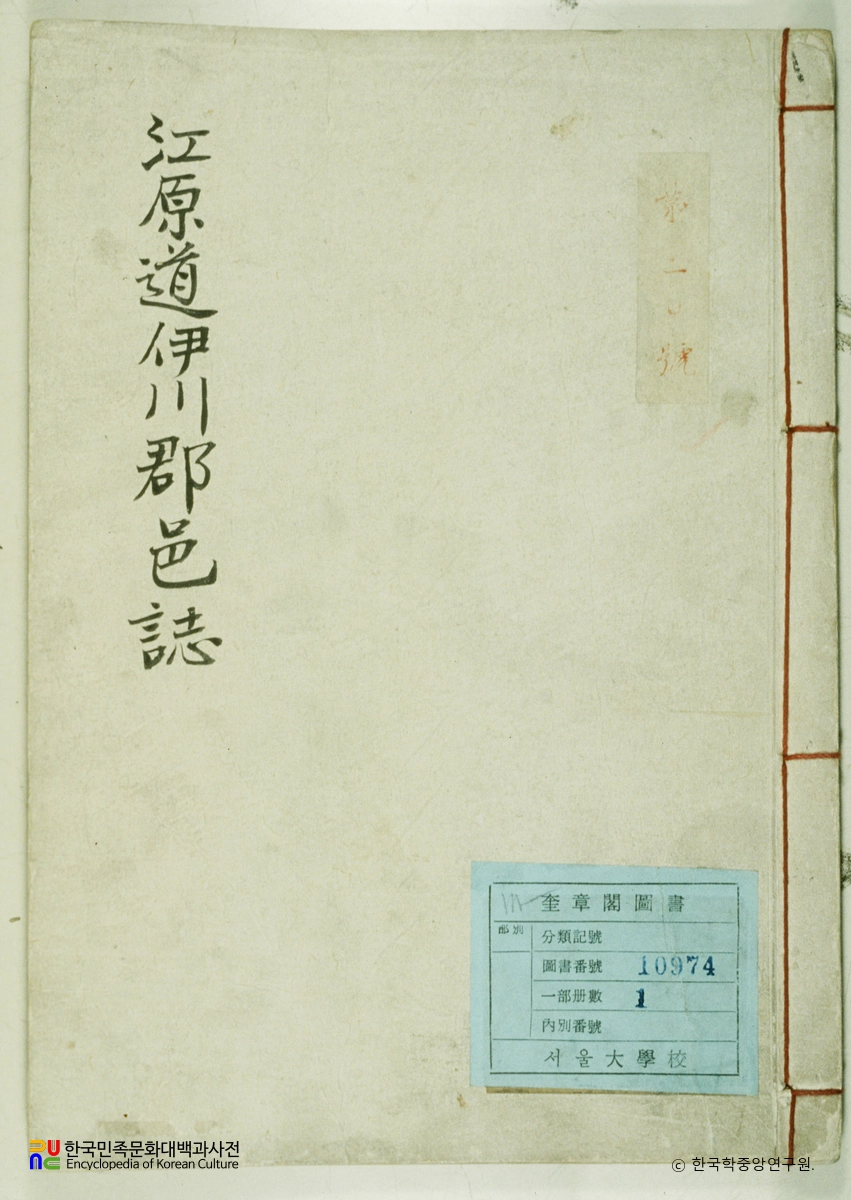 江原道伊川郡邑誌
第二〇號
奎章閣圖書
部別
分類記號
圖書番號 10974
一部册數 1
內別番號
서울大學校
한국민족문화대백과사전
Encyclopedia of Korean Culture
© 한국학중앙연구원.